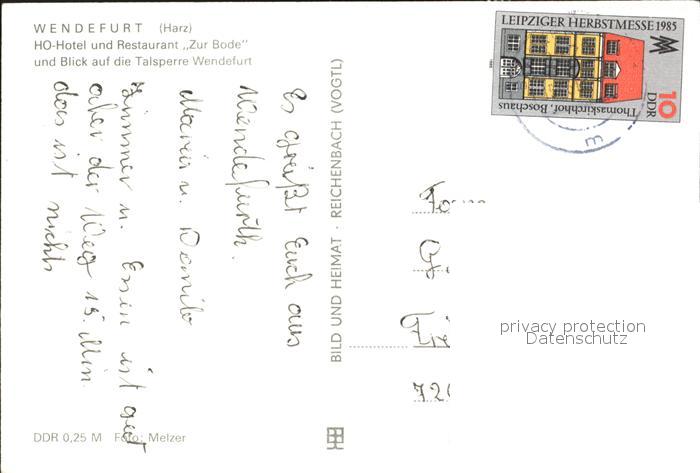 WENDEFURT (Harz)
HO-Hotel und Restaurant „Zur Bode"
und Blick auf die Talsperre Wendefurt
Es grüßt Euch aus
Wendefurth.
Maria u. Danilo
Zimmer u. Essen ist gut
aber der Weg 15. Min.
das ist nichts
BILD UND HEIMAT · REICHENBACH (VOGTL)
LEIPZIGER HERBSTMESSE 1985
Thomaskirchhof, Boschaus
10
DDR
Fa
720
privacy protection
Datenschutz
DDR 0,25 M Foto: Melzer